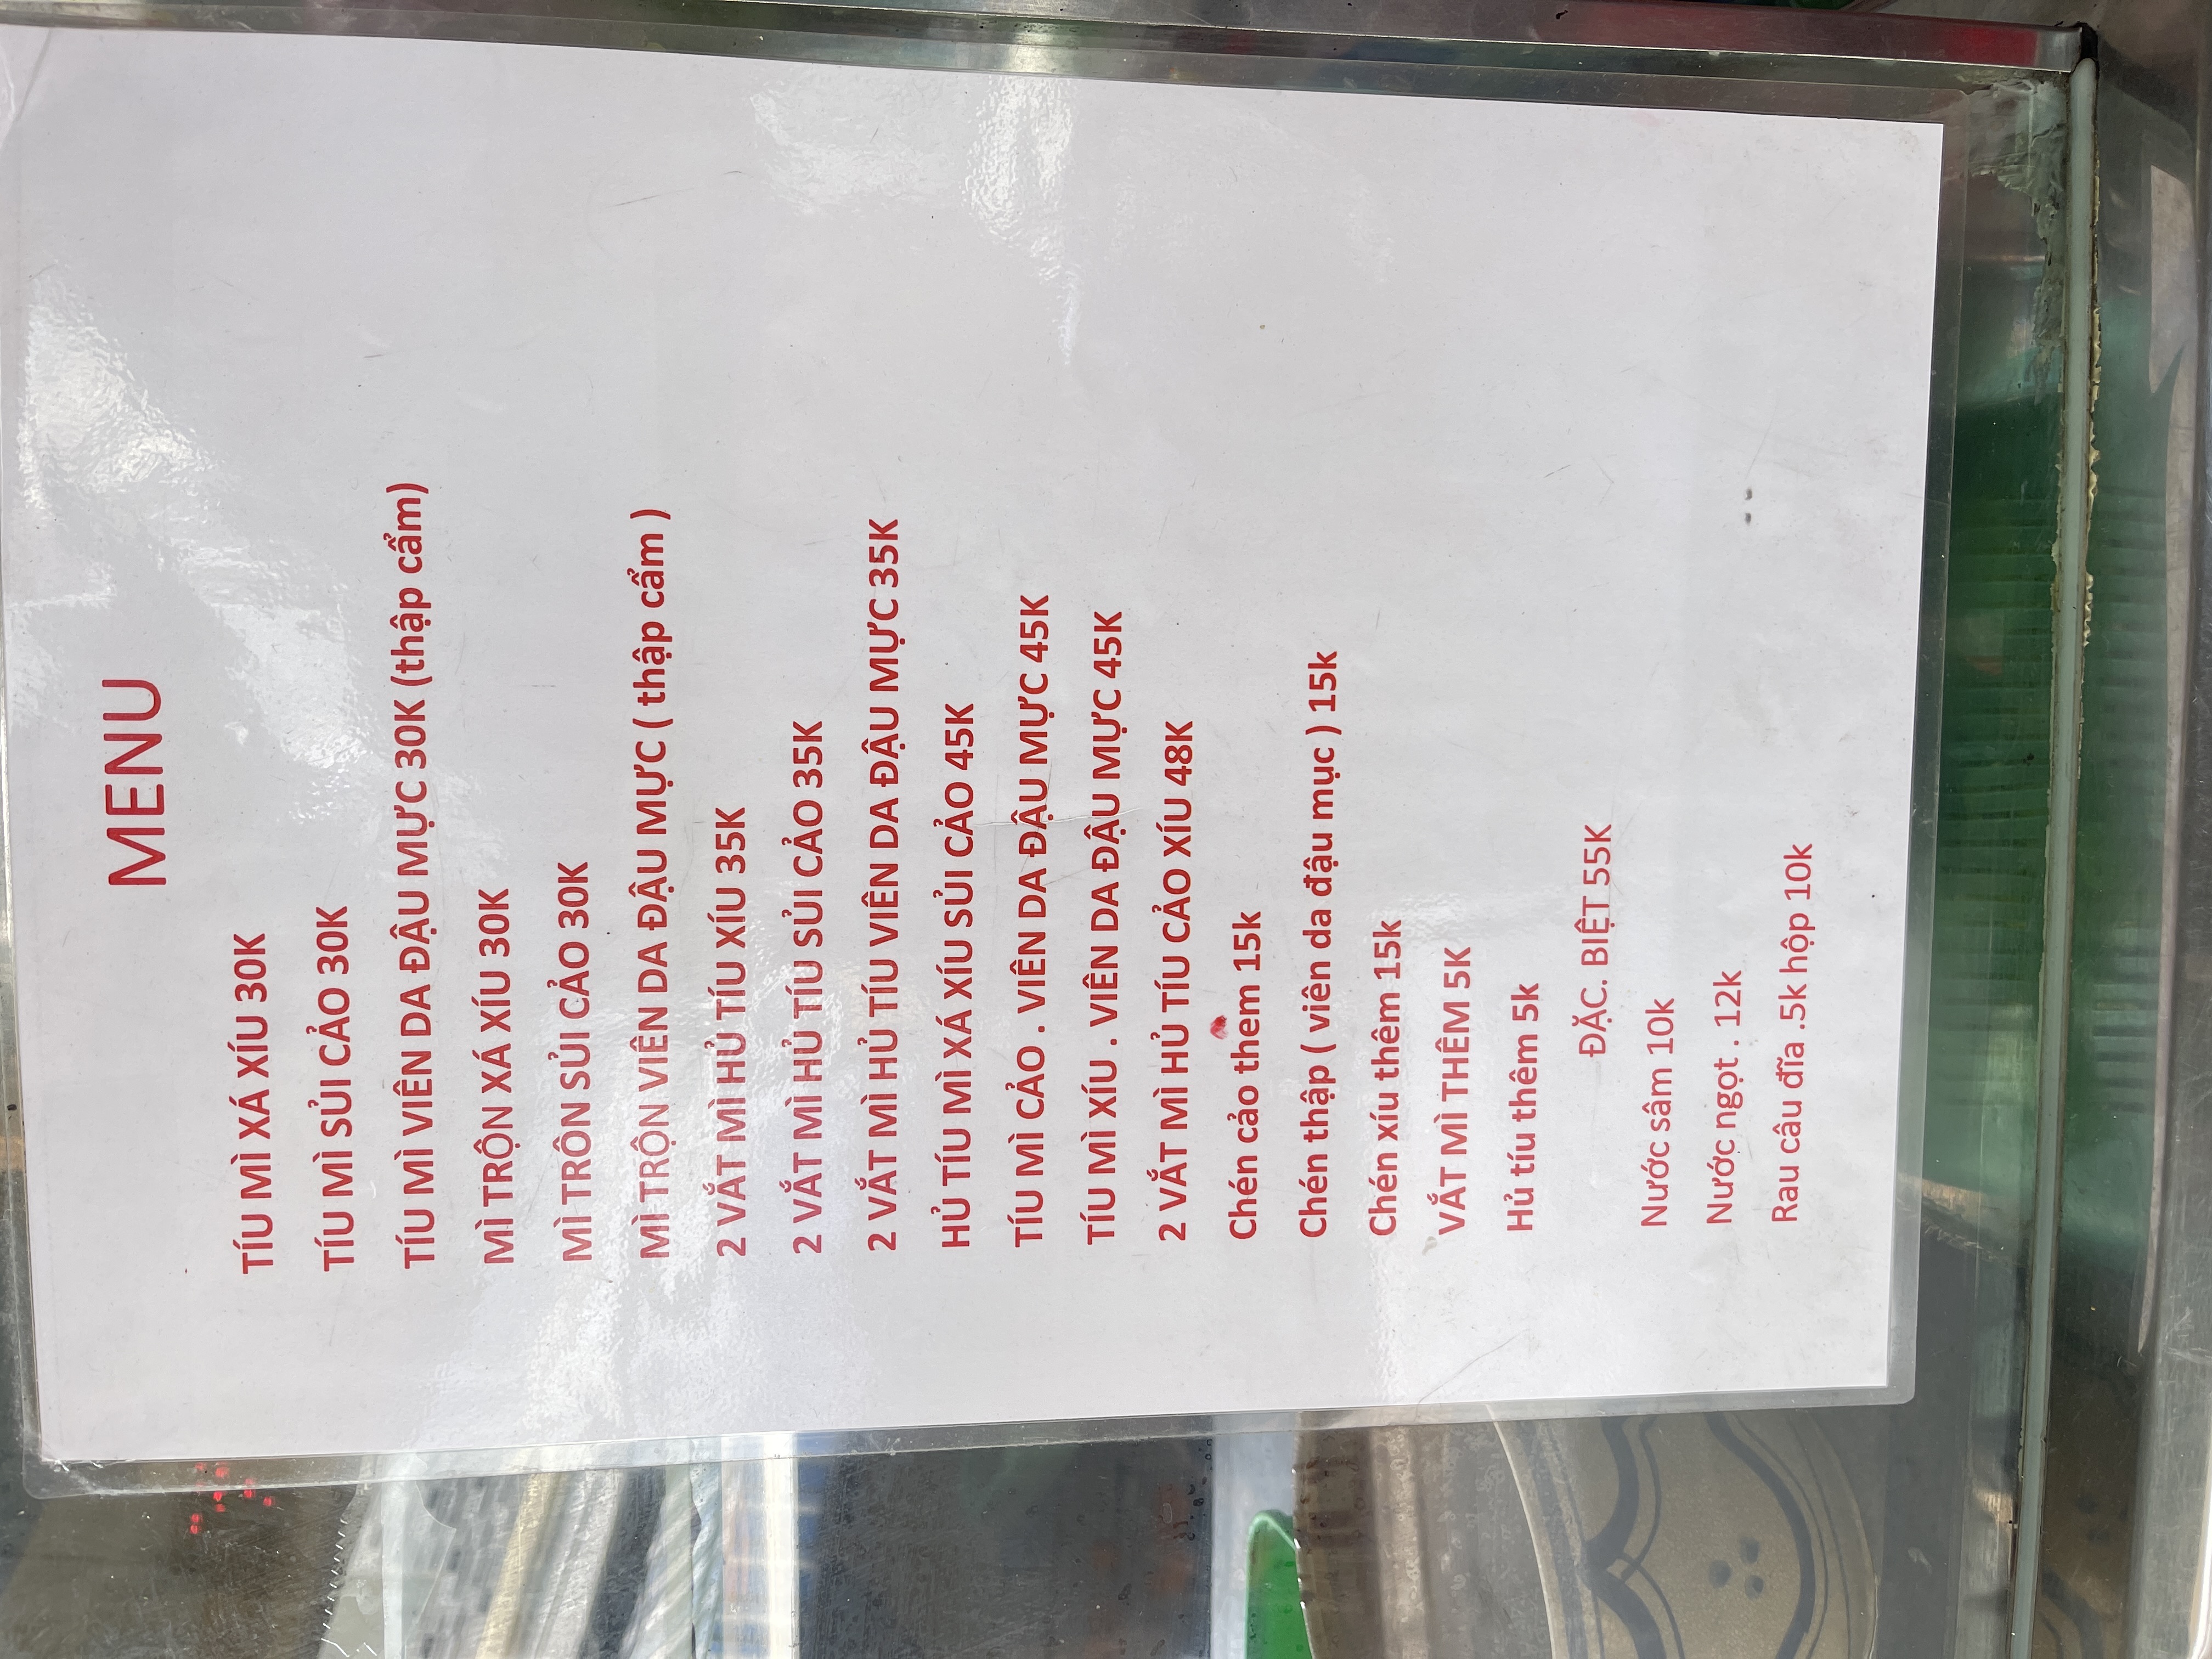 MENU
TÍU MÌ XÁ XÍU 30K
TÍU MÌ SỦI CẢO 30K
TÍU MÌ VIÊN DA ĐẬU MỰC 30K (thập cẩm)
MÌ TRỘN XÁ XÍU 30K
MÌ TRÔN SỦI CẢO 30K
MÌ TRỘN VIÊN DA ĐẬU MỰC ( thập cẩm )
2 VẮT MÌ HỦ TÍU XÍU 35K
2 VẮT MÌ HỦ TÍU SỦI CẢO 35K
2 VẮT MÌ HỦ TÍU VIÊN DA ĐẬU MỰC 35K
HỦ TÍU MÌ XÁ XÍU SỦI CẢO 45K
TÍU MÌ CẢO . VIÊN DA ĐẬU MỰC 45K
TÍU MÌ XÍU . VIÊN DA ĐẬU MỰC 45K
2 VẮT MÌ HỦ TÍU CẢO XÍU 48K
Chén cảo them 15k
Chén thập ( viên da đậu mục ) 15k
Chén xíu thêm 15k
VẮT MÌ THÊM 5K
Hủ tíu thêm 5k
ĐẶC. BIỆT 55K
Nước sâm 10k
Nước ngọt . 12k
Rau câu đĩa .5k hộp 10k